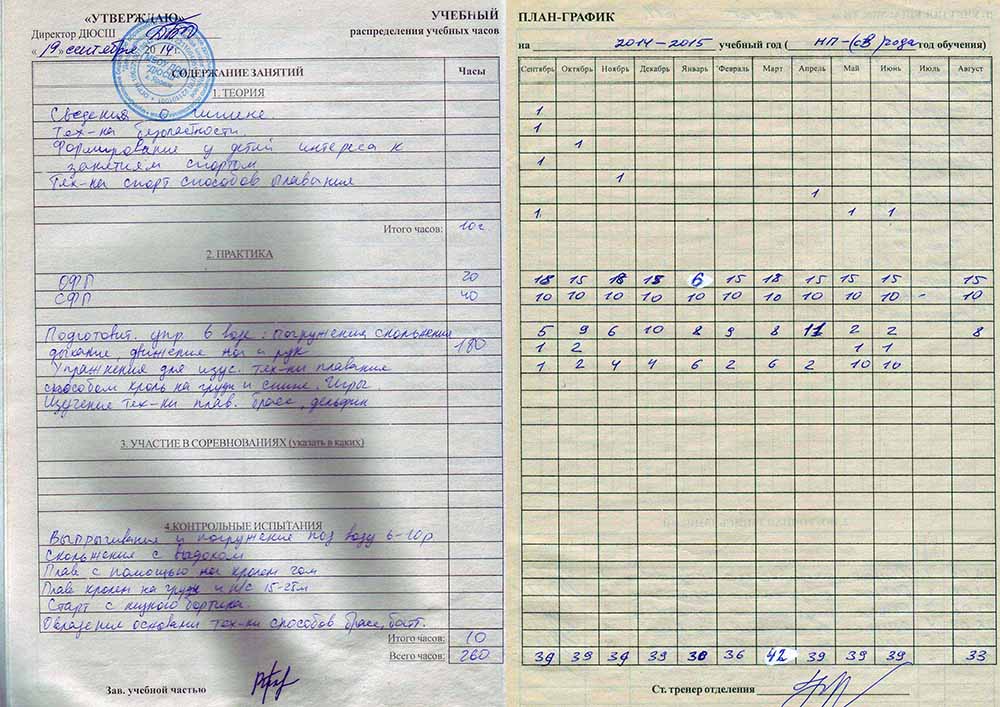 «УТВЕРЖДАЮ»
Директор ДЮСШ
«19» сентября 2014 г.
УЧЕБНЫЙ
распределения учебных часов
СОДЕРЖАНИЕ ЗАНЯТИЙ Часы
1. ТЕОРИЯ
Сведения о гигиене
Тех-ка безопастности.
Формирование у детей интереса к
занятиям спортом
Тех-ка спорт способов плавания
Итого часов: 10ч
2. ПРАКТИКА
ОФП 20
СФП 40
Подготовит. упр в воде: погружения скольжения
дыхание, движение ног и рук 180
Упражнения для изуч. тех-ки плавание
способом кроль на груди и спине. Игры.
Изучение тех-ки плав. брасс, дельфин
3. УЧАСТИЕ В СОРЕВНОВАНИЯХ (указать в каких)
4.КОНТРОЛЬНЫЕ ИСПЫТАНИЯ
Выпрыгивания и погружение под воду 6-10р
Скольжение с выдохом
Плав с помощью ног кролем
Плав кролем на груди и н/с 15-25м
Старт с низкого бортика.
Овладения основами тех-ки способов брасс, батт.
Итого часов: 10
Всего часов: 260
Зав. учебной частью
ПЛАН-ГРАФИК
на 2014-2015 учебный год ( НП-(св года год обучения)
Сентябрь Октябрь Ноябрь Декабрь Январь Февраль Март Апрель Май Июнь Июль Август
1
1
1
1
1
1
1 1 1
18 15 18 18 6 15 18 15 15 15 15
10 10 10 10 10 10 10 10 10 10 - 10
5 9 6 10 8 9 8 11 2 2 8
1 2 1 1
1 2 4 4 6 2 6 2 10 10
39 39 39 39 30 36 42 39 39 39 33
Ст. тренер отделения